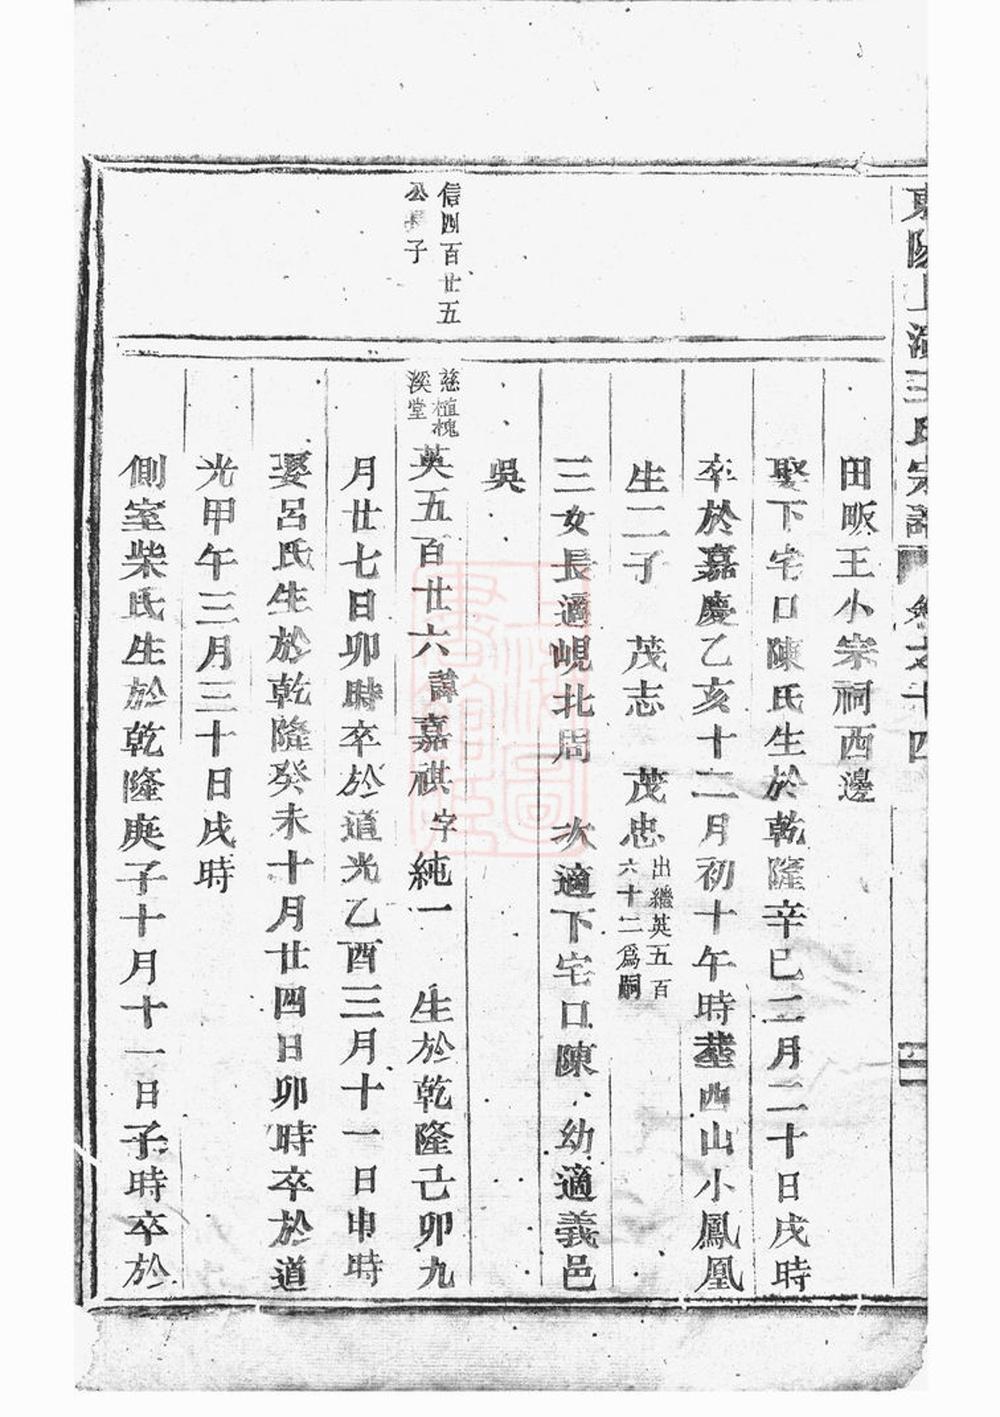 東陽上湖王氏宗譜 卷之十四
田畈王小宗祠西邊
娶下宅口陳氏生於乾隆辛巳二月二十日戌時
卒於嘉慶乙亥十二月初十午時塟西山小鳳凰
生二子 茂志 茂忠 出繼英五百六十二爲嗣
三女長適峴北周 次適下宅口陳 幼適義邑
吳
信四百廿五公長子
慈植槐溪堂 英五百廿六諱嘉祺字純一 生於乾隆己卯九
月廿七日卯時卒於道光乙酉三月十一日申時
娶呂氏生於乾隆癸未十月廿四日卯時卒於道
光甲午三月三十日戌時
側室柴氏生於乾隆庚子十月十一日子時卒於